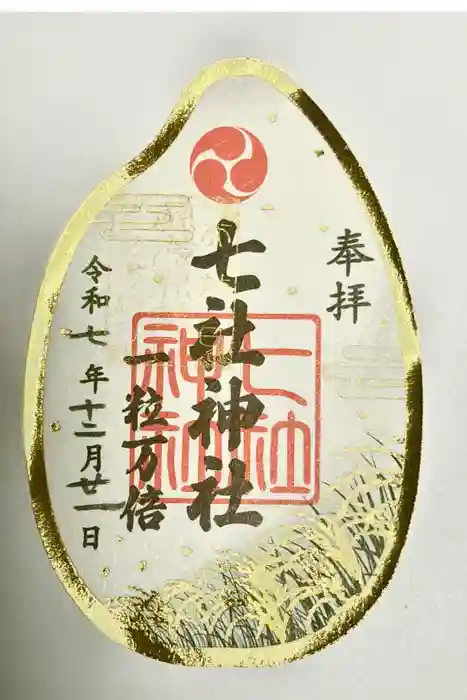 奉拝
七社神社
七社神社
一粒万倍
令和七年十二月廿一日